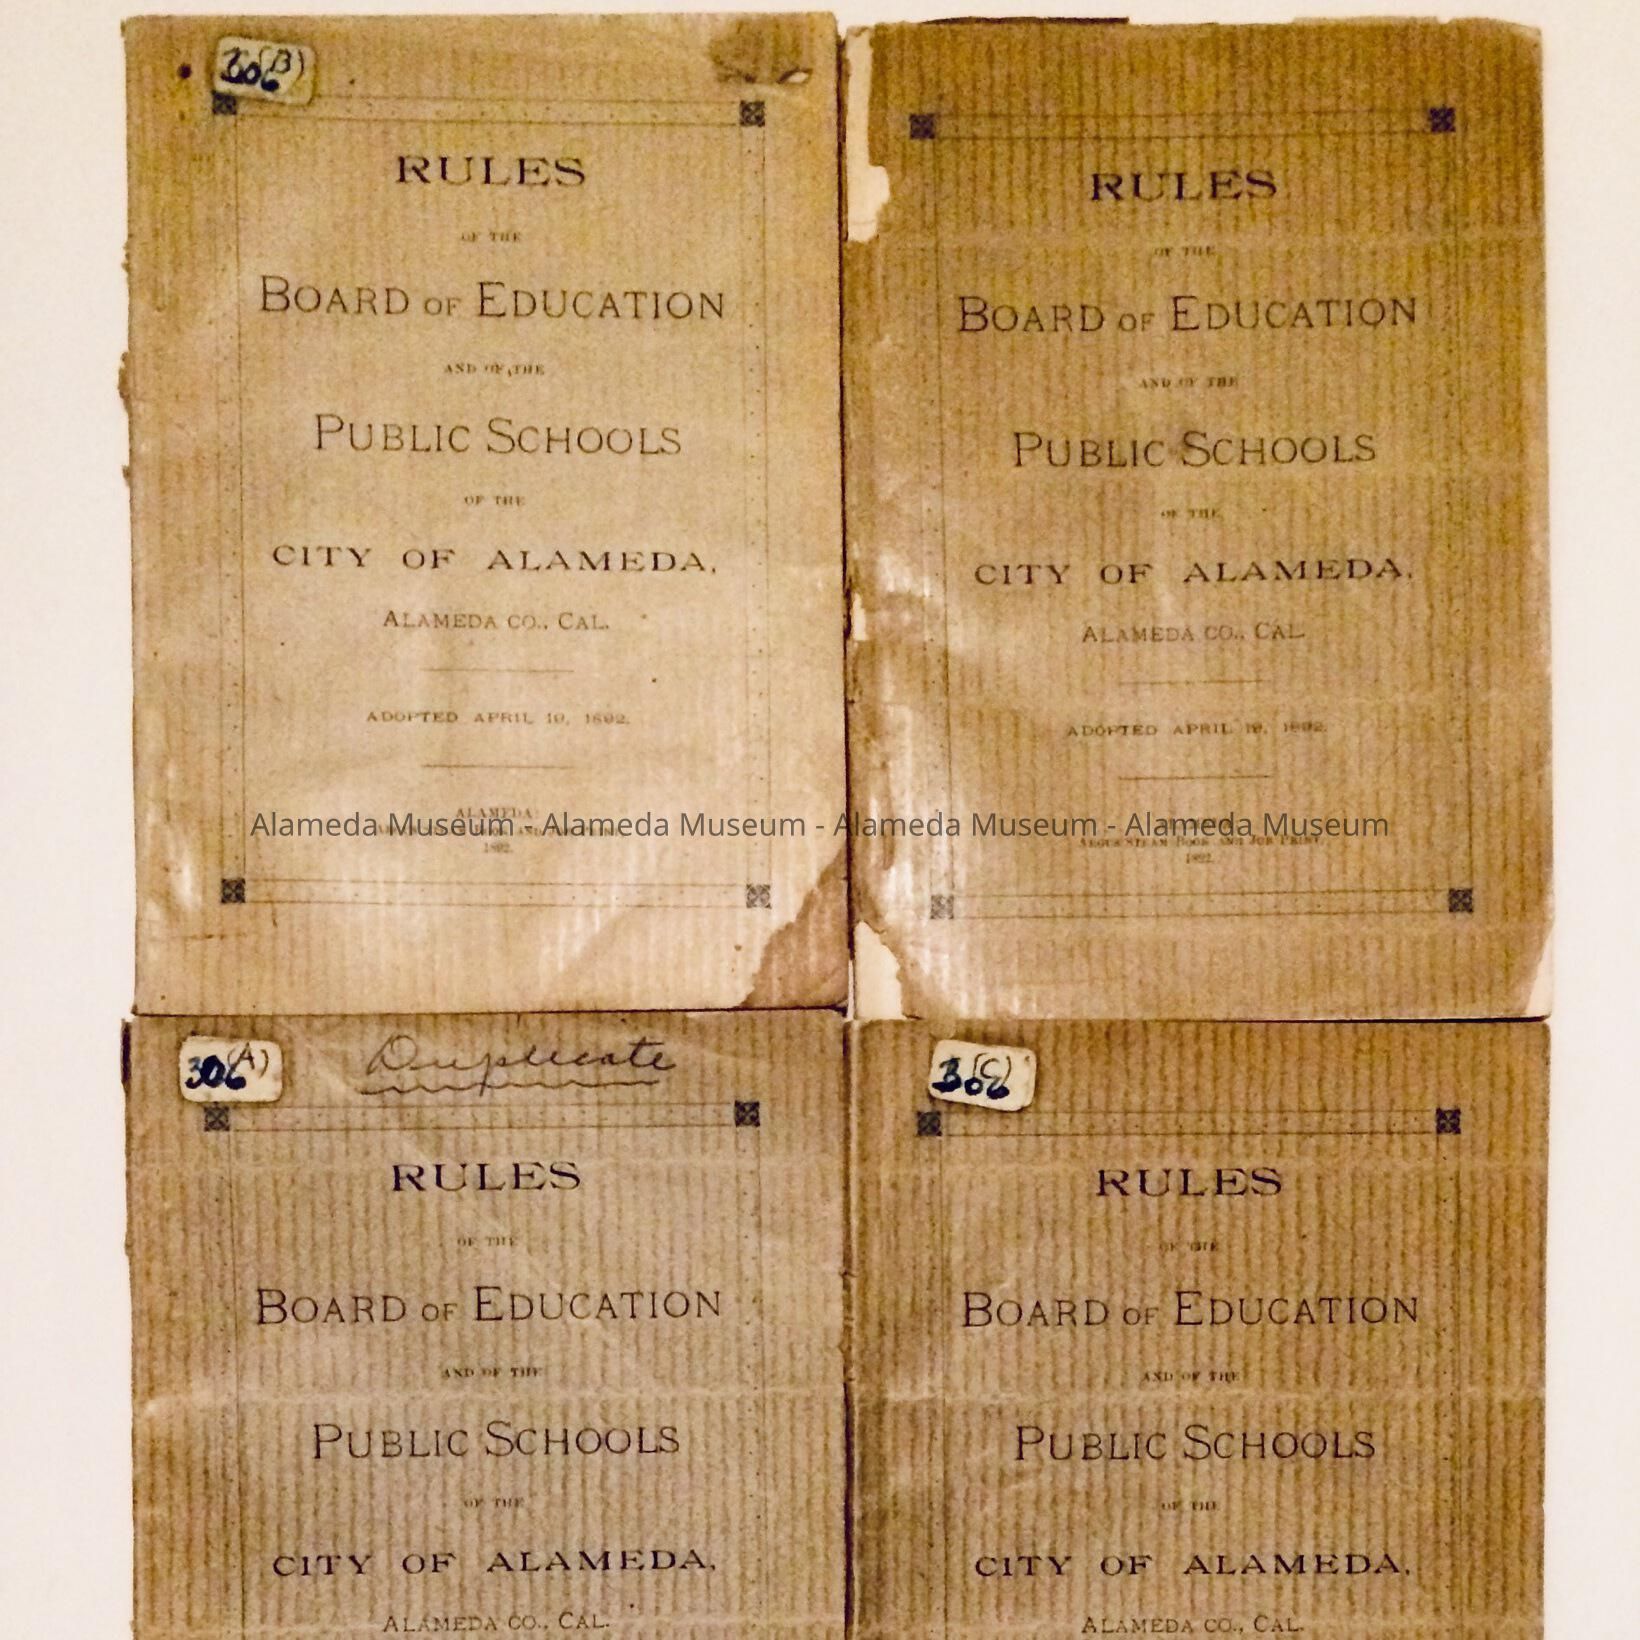 306(B)
RULES
OF THE
BOARD OF EDUCATION
AND OF THE
PUBLIC SCHOOLS
OF THE
CITY OF ALAMEDA,
ALAMEDA CO., CAL.
ADOPTED APRIL 19, 1892.
ALAMEDA:
1892.
RULES
OF THE
BOARD OF EDUCATION
AND OF THE
PUBLIC SCHOOLS
OF THE
CITY OF ALAMEDA,
ALAMEDA CO., CAL.
ADOPTED APRIL 19, 1892.
ARGUS STEAM BOOK AND JOB PRINT.
1892.
Alameda Museum - Alameda Museum - Alameda Museum - Alameda Museum
306(A)
Duplicate
RULES
OF THE
BOARD OF EDUCATION
AND OF THE
PUBLIC SCHOOLS
OF THE
CITY OF ALAMEDA,
ALAMEDA CO., CAL.
306(C)
RULES
OF THE
BOARD OF EDUCATION
AND OF THE
PUBLIC SCHOOLS
OF THE
CITY OF ALAMEDA,
ALAMEDA CO., CAL.